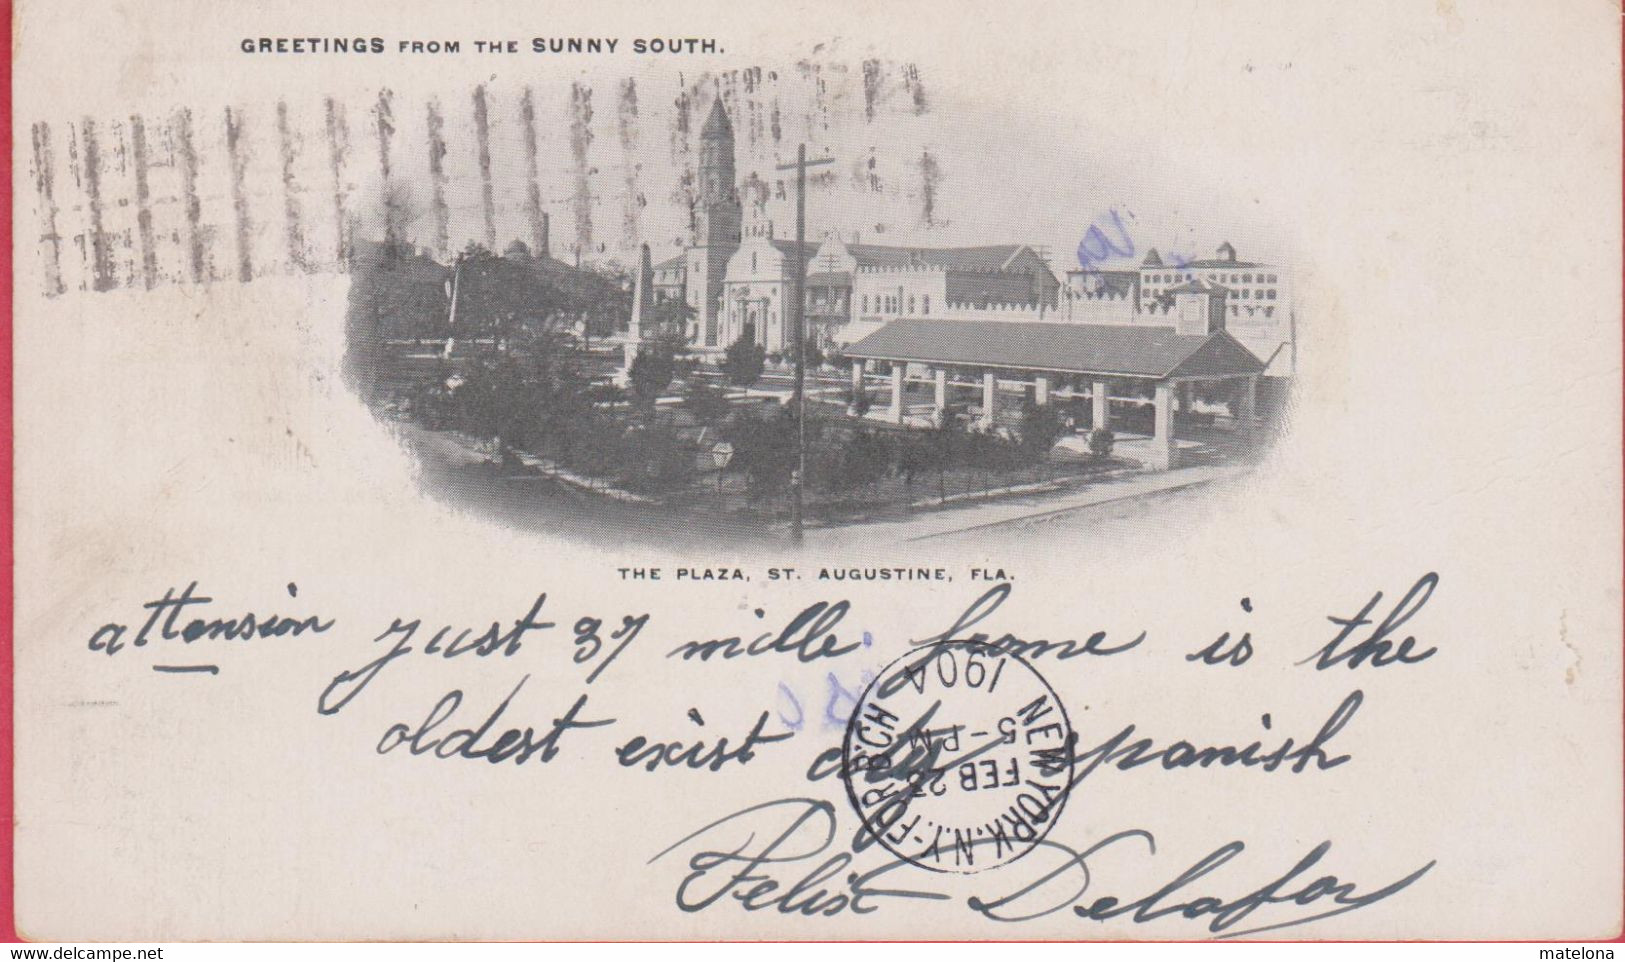 GREETINGS FROM THE SUNNY SOUTH.
THE PLAZA, ST. AUGUSTINE, FLA.
attension just 37 mille frome is the
oldest exist city spanish
NEW YORK. N.Y.-FOR B'CH
5-PM
FEB 23
1904
Felix Delafoy
www.delcampe.net
matelona